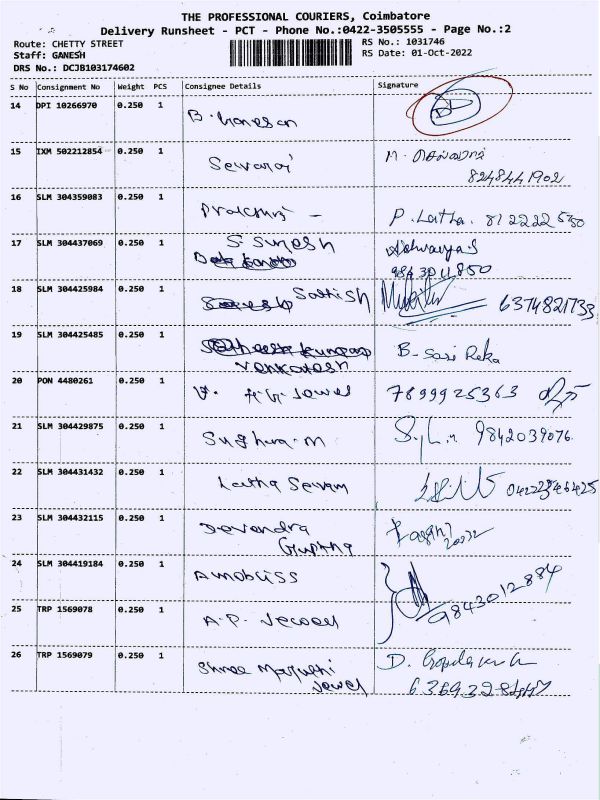 THE PROFESSIONAL COURIERS, Coimbatore
Delivery Runsheet - PCT - Phone No.:0422-3505555 - Page No.:2
Route: CHETTY STREET RS No.: 1031746
Staff: GANESH RS Date: 01-Oct-2022
DRS No.: DCJB103174602
S No Consignment No Weight PCS Consignee Details Signature
14 DPI 10266970 0.250 1
B. Ganesan
15 IXM 502212854 0.250 1 M.
Selvaraj 8248441902
16 SLM 304359083 0.250 1
P. Latha. 8122225350
17 SLM 304437069 0.250 1 S. Suresh Aishwarya S
9843011850
18 SLM 304425984 0.250 1 Sathish 6374821733
19 SLM 304425485 0.250 1 B. Sasi Reka
Venkatesh
20 PON 4480261 0.250 1 Jewel 7899925363
21 SLM 304429875 0.250 1
Sughuna. M 9842039076
22 SLM 304431432 0.250 1
Latha Selvam
23 SLM 304432115 0.250 1
Devendra
Guptha
24 SLM 304419184 0.250 1
Amobliss 9843012884
25 TRP 1569078 0.250 1
A.P. Jewel
26 TRP 1569079 0.250 1 D.
Shree Maruthi
Jewel